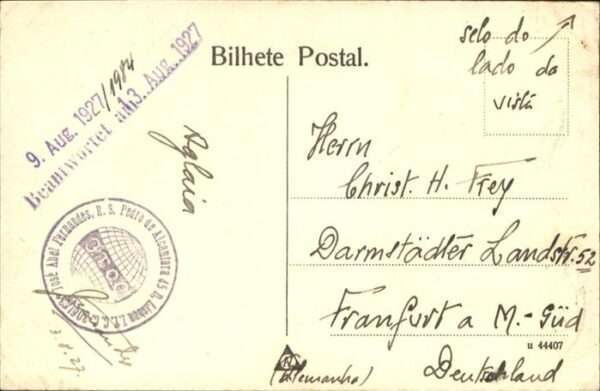 Bilhete Postal.
selo do
lado da
vista
9. Aug. 1927/1984
Beantwortet am 13. Aug. 1927
Aglaia
Herrn
Christ. H. Frey
Darmstädter Landstr. 52
Franfurt a M.-Süd
(Alemanha) Deutschland
u 44407
José Abel Fernandes, R. S. Pedro de Alcantara 45
3.8.27